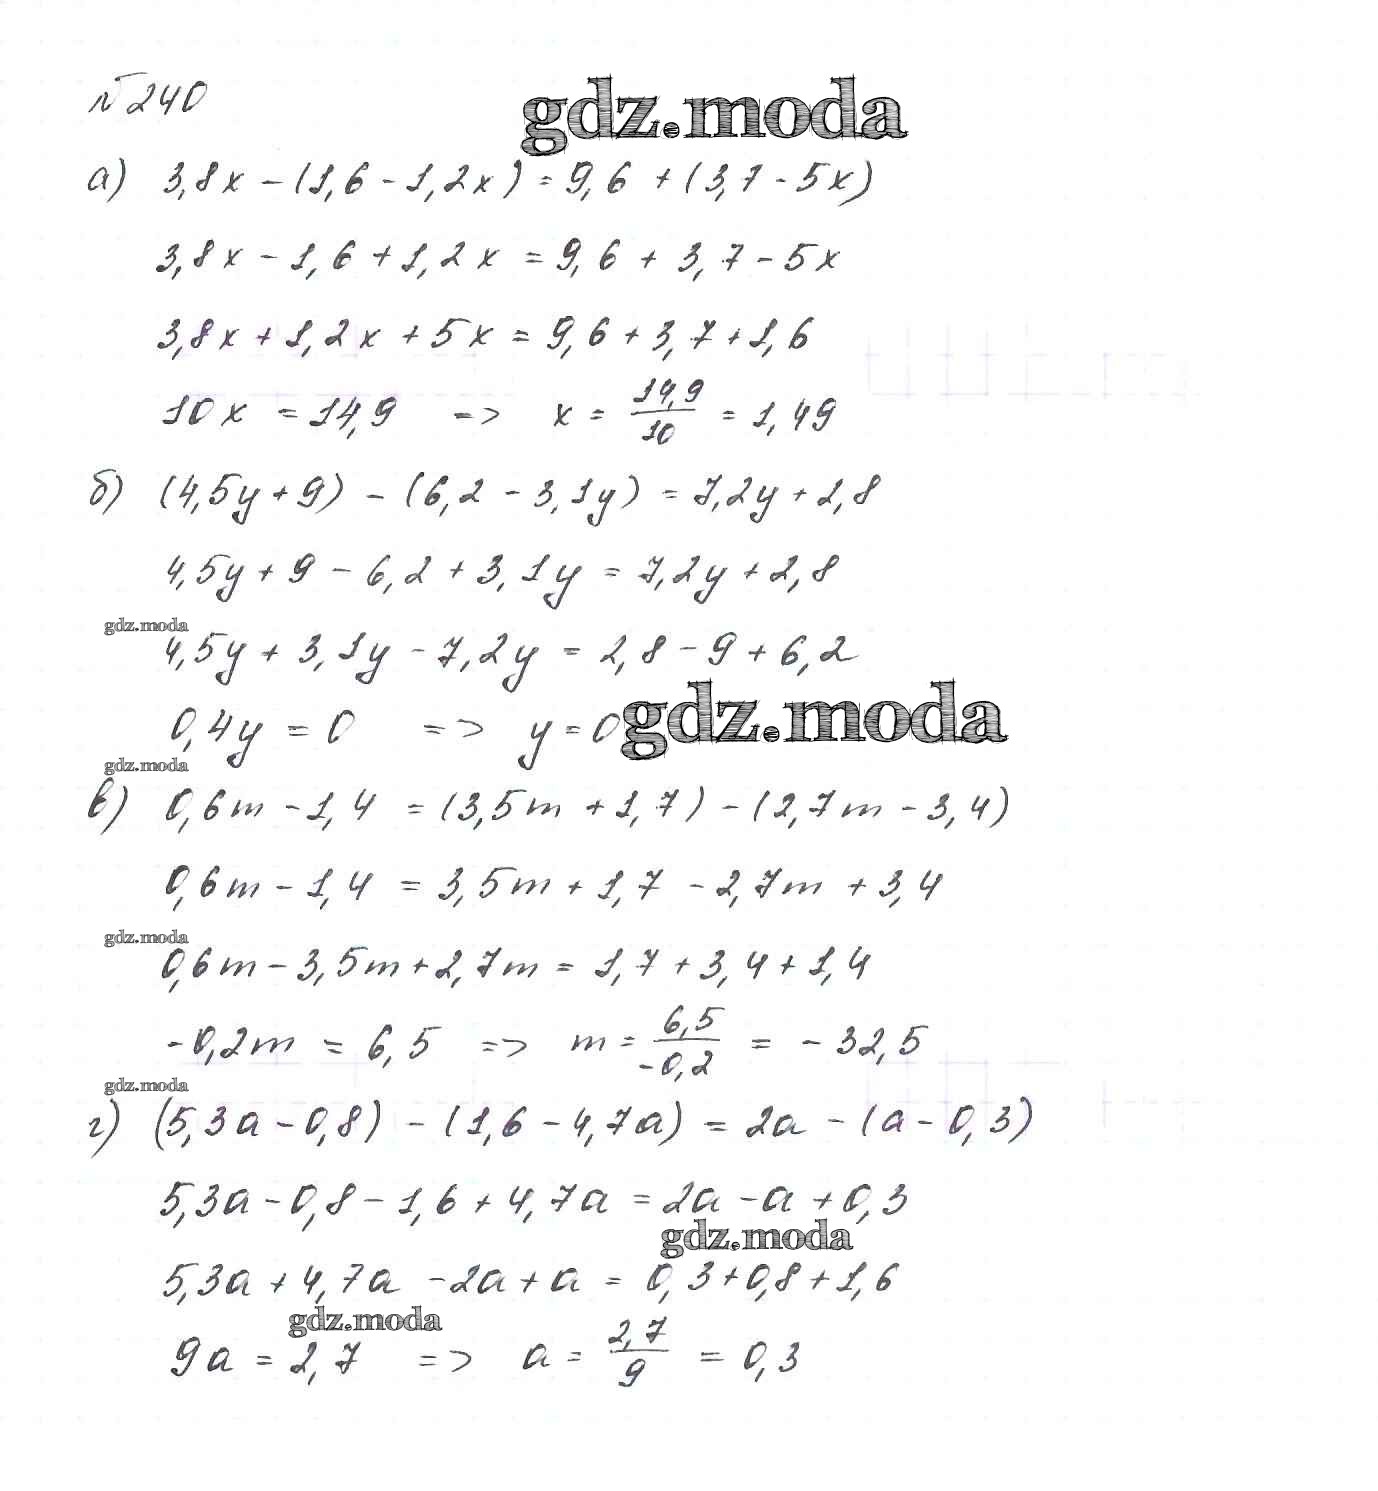 №240
gdz.moda
а) 3,8x - (1,6 - 1,2x) = 9,6 + (3,7 - 5x)
3,8x - 1,6 + 1,2x = 9,6 + 3,7 - 5x
3,8x + 1,2x + 5x = 9,6 + 3,7 + 1,6
10x = 14,9 => x = 14,9/10 = 1,49
б) (4,5y + 9) - (6,2 - 3,1y) = 7,2y + 2,8
4,5y + 9 - 6,2 + 3,1y = 7,2y + 2,8
gdz.moda
4,5y + 3,1y - 7,2y = 2,8 - 9 + 6,2
0,4y = 0 => y = 0
gdz.moda
gdz.moda
в) 0,6m - 1,4 = (3,5m + 1,7) - (2,7m - 3,4)
0,6m - 1,4 = 3,5m + 1,7 - 2,7m + 3,4
gdz.moda
0,6m - 3,5m + 2,7m = 1,7 + 3,4 + 1,4
-0,2m = 6,5 => m = 6,5/-0,2 = -32,5
gdz.moda
г) (5,3a - 0,8) - (1,6 - 4,7a) = 2a - (a - 0,3)
5,3a - 0,8 - 1,6 + 4,7a = 2a - a + 0,3
gdz.moda
5,3a + 4,7a - 2a + a = 0,3 + 0,8 + 1,6
gdz.moda
9a = 2,7 => a = 2,7/9 = 0,3